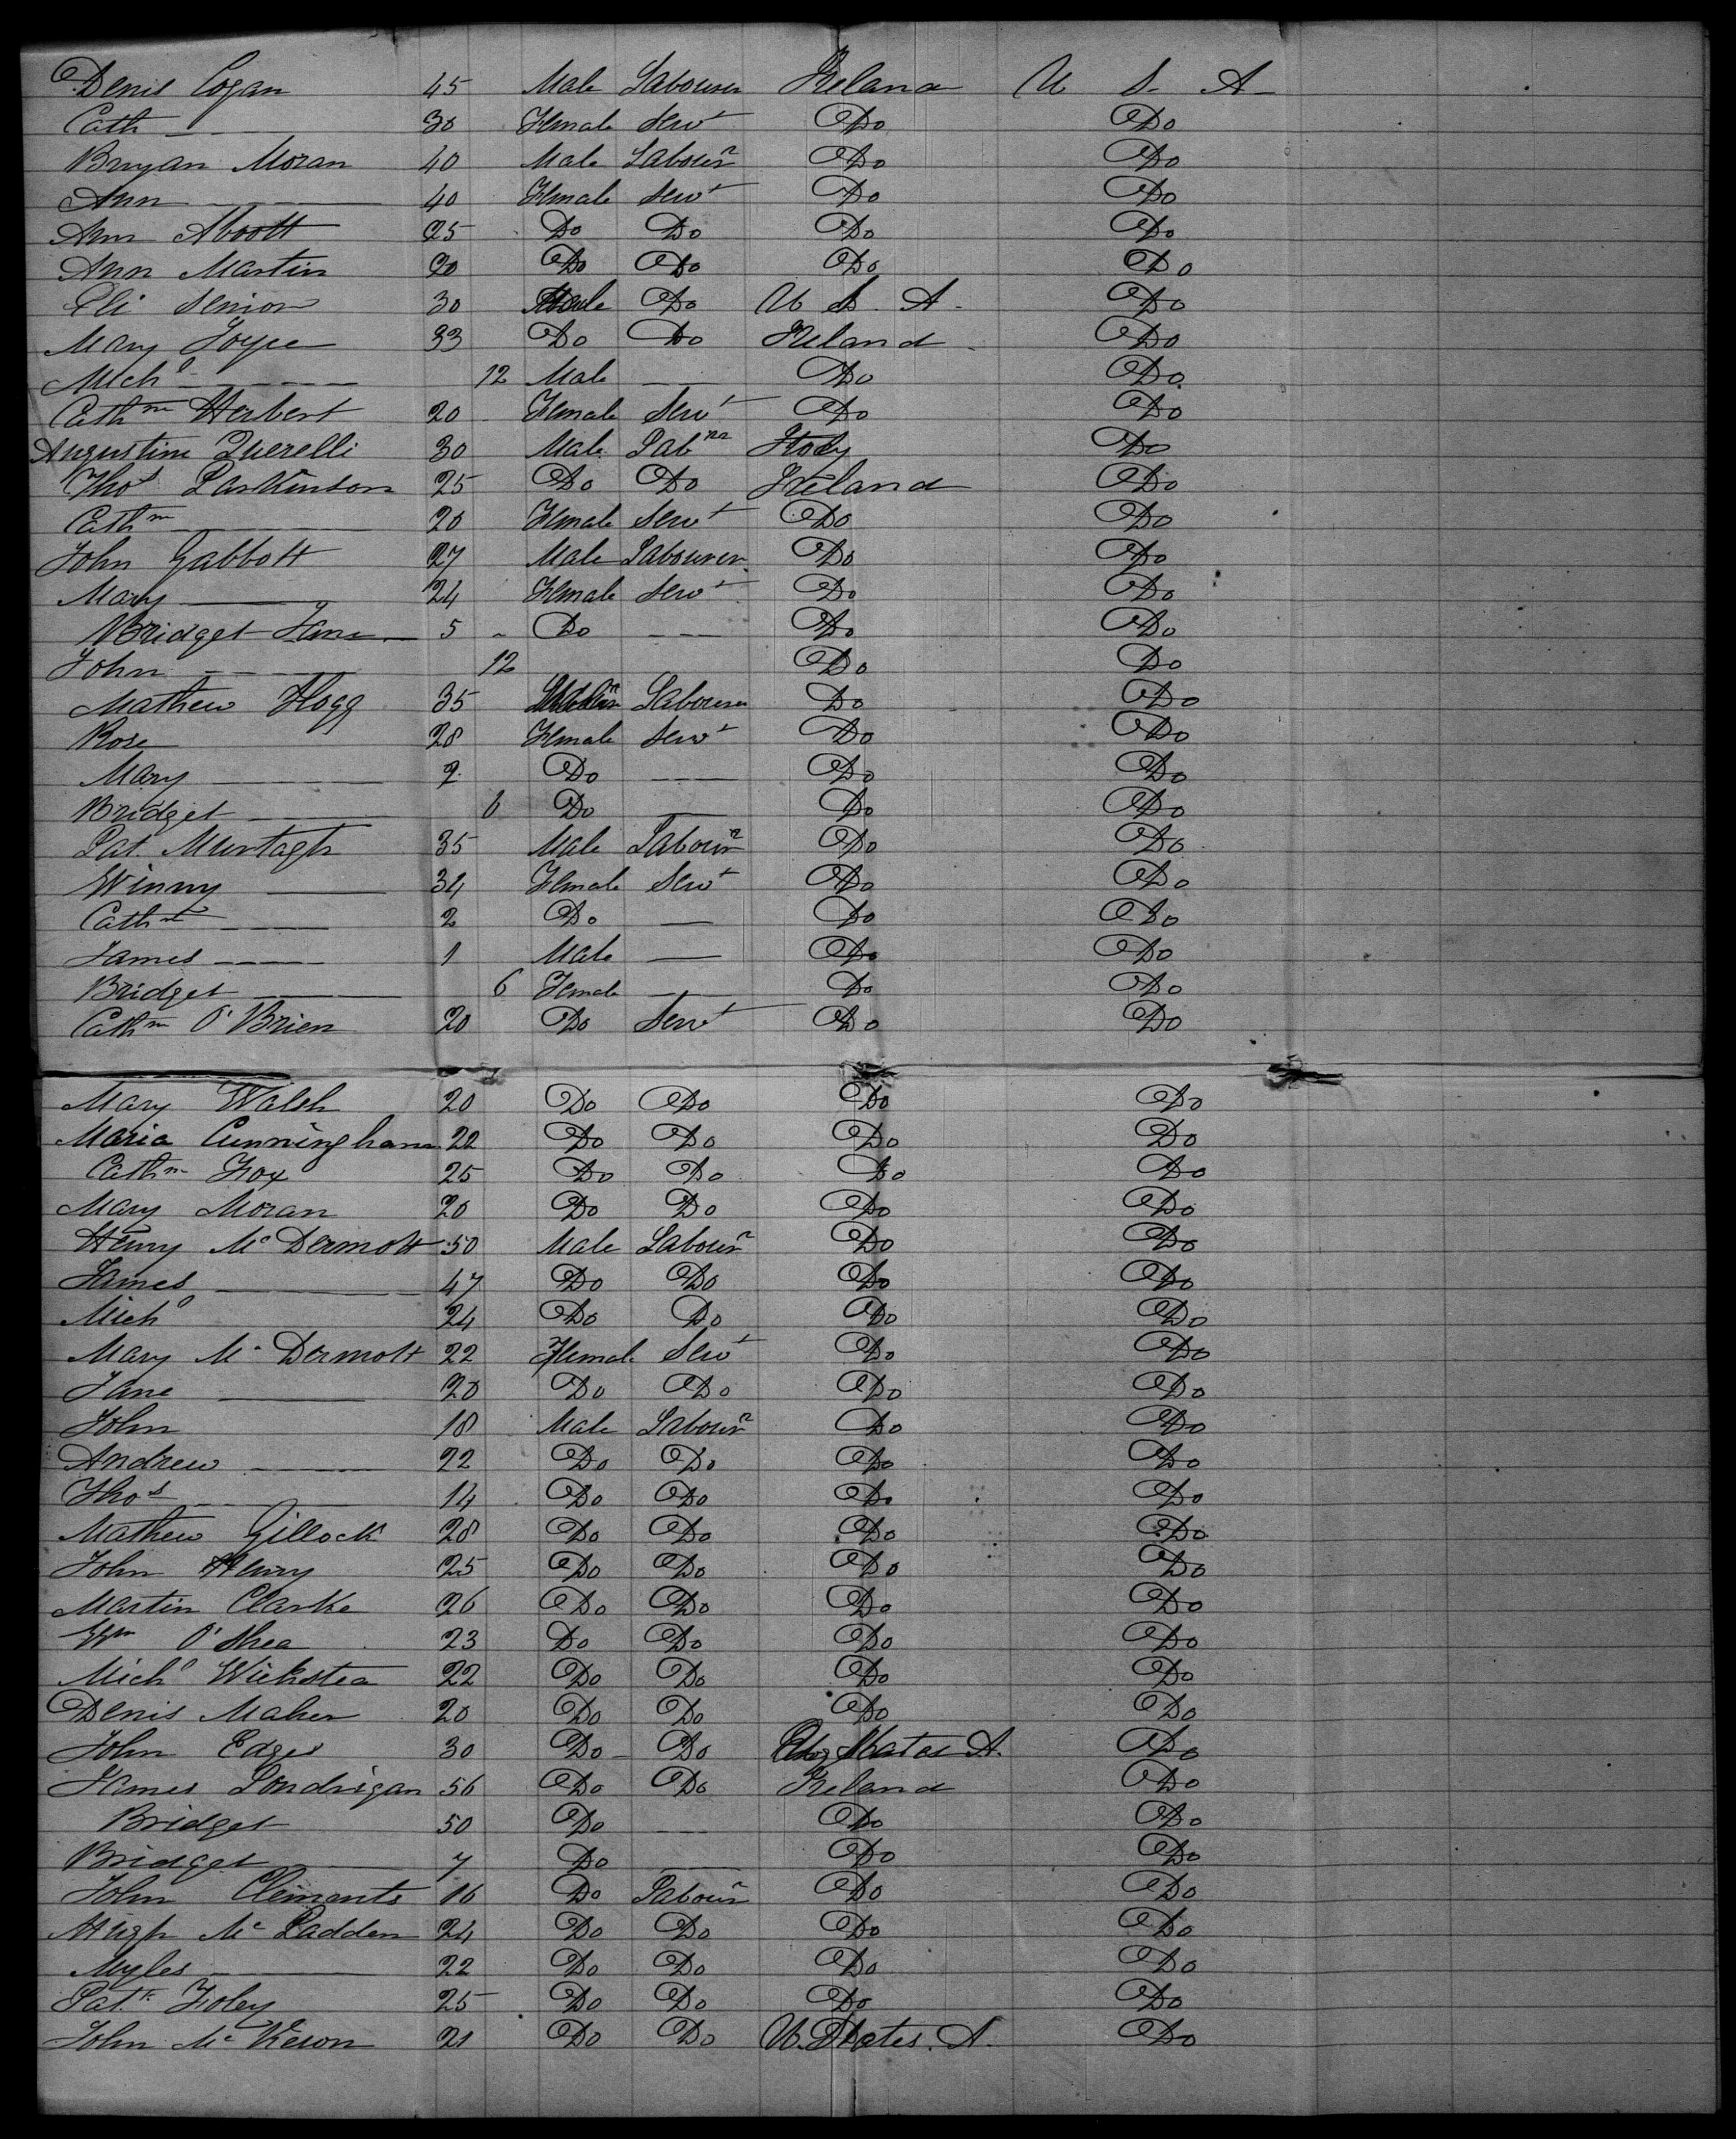 Denis Cogan 45 Male Labourer Ireland U S. A
Cath — 30 Female Servt Do Do
Bryan Moran 40 Male Labourr Do Do
Ann — 40 Female Servt Do Do
Ann Abbott 25 Do Do Do Do
Ann Martin 20 Do Do Do Do
Eli Senior 30 Male Do U S. A. Do
Mary Joyce 33 Do Do Ireland Do
Michl — 12 Male — Do Do
Cathne Herbert 20 Female Servt Do Do
Augustine Querelli 30 Male Labrr Italy Do
Thos Parkinson 25 Do Do Ireland Do
Cathn — 20 Female Servt Do Do
John Gabbott 27 Male Labourer Do Do
Mary — 24 Female Servt Do Do
Bridget Jane — 5 Do — Do Do
John — 12 Do Do
Mathew Hogg 35 Labourer Do Do
Rose — 28 Female Servt Do Do
Mary — 2 Do — Do Do
Bridget — 6 Do — Do Do
Pat. Murtagh 35 Male Labourr Do Do
Winny — 34 Female Servt Do Do
Cathne — 2 Do — Do Do
James — 1 Male — Do Do
Bridget — 6 Female — Do Do
Cathne O'Brien 20 Do Servt Do Do
Mary Walsh 20 Do Do Do Do
Maria Cunningham 22 Do Do Do Do
Cathne Fox 25 Do Do Do Do
Mary Moran 20 Do Do Do Do
Henry Mc Dermott 50 Male Labourr Do Do
James — 47 Do Do Do Do
Michl 24 Do Do Do Do
Mary Mc Dermott 22 Female Servt Do Do
Jane — 20 Do Do Do Do
John 18 Male Labourr Do Do
Andrew — 22 Do Do Do Do
Thos — 14 Do Do Do Do
Mathew Gillock 28 Do Do Do Do
John Henry 25 Do Do Do Do
Martin Clarke 26 Do Do Do Do
Wm O'Shea 23 Do Do Do Do
Michl Wickstea 22 Do Do Do Do
Denis Maher 20 Do Do Do Do
John Edges 30 Do Do States A. Do
James Londrigan 56 Do Do Ireland Do
Bridget 50 Do — Do Do
Bridget — 7 Do — Do Do
John Clements 16 Do Labourr Do Do
Hugh Mc Padden 24 Do Do Do Do
Myles — 22 Do Do Do Do
Patk Foley 25 Do Do Do Do
John Mc Keson 21 Do Do U. States. A. Do